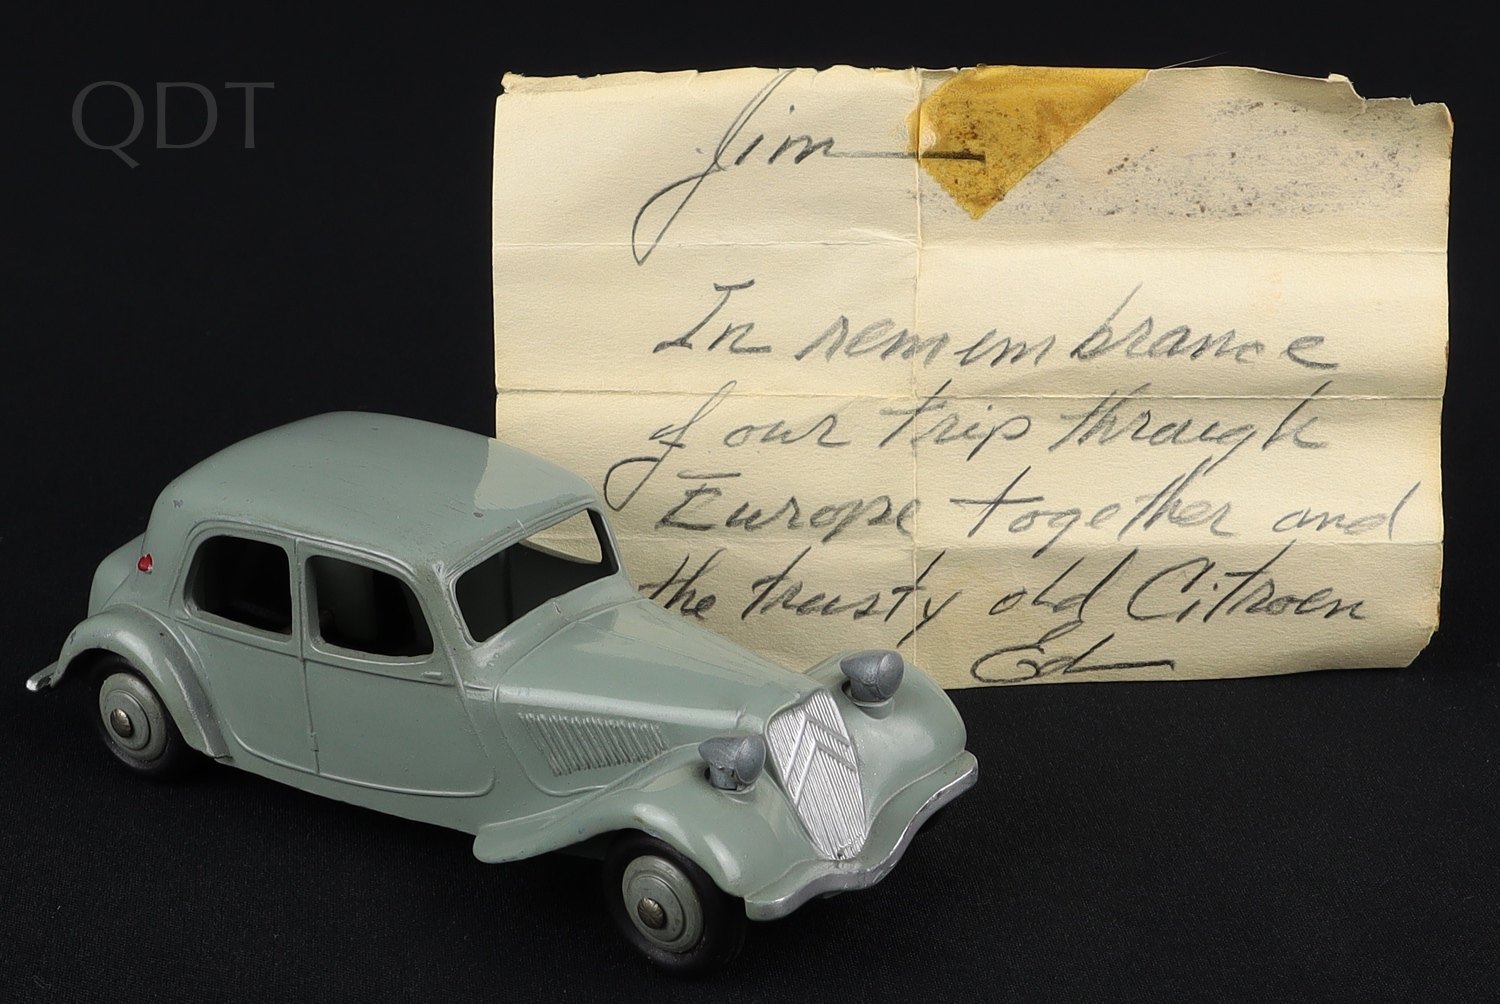 QDT
Jim—
In remembrance
of our trip through
Europe together and
the trusty old Citroen
Ed—